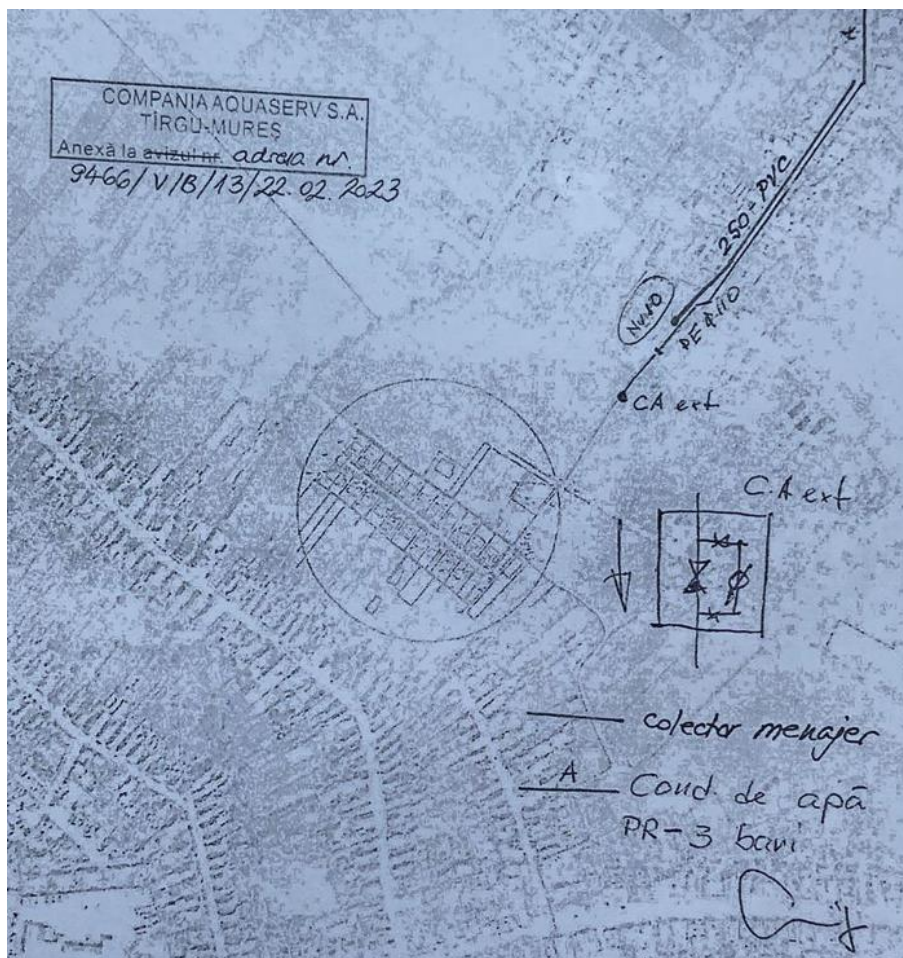 COMPANIA AQUASERV S.A.
TÎRGU-MUREȘ
Anexă la avizul nr. adresa nr.
9466/V/B/13/22.02.2023
250-PVC
PE Φ110
CA ext
C.A ext
colector menajer
A
Cond. de apă
PR-3 bari